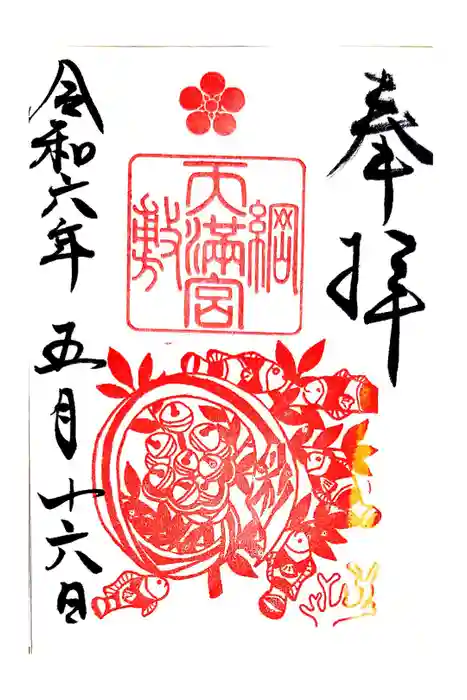 奉拝
綱敷天満宮
令和六年五月十六日